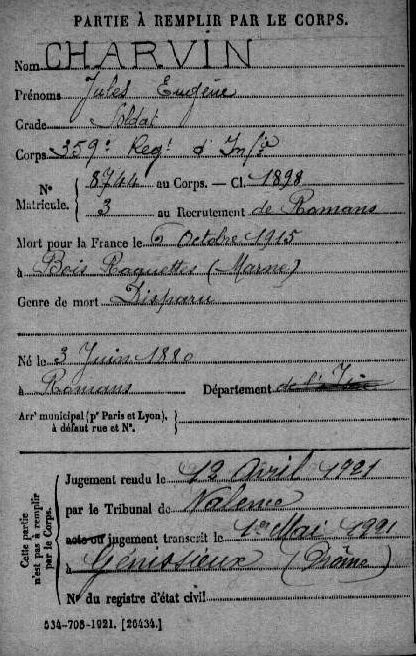 PARTIE À REMPLIR PAR LE CORPS.
Nom CHARVIN
Prénoms Jules Eugène
Grade Soldat
Corps 359e Regt d'Infie
N° Matricule. { 8744 au Corps. — Cl. 1898
3 au Recrutement de Romans
Mort pour la France le 6 Octobre 1915
à Bois Raquettes (Marne)
Genre de mort Disparu
Né le 3 Juin 1880
à Romans Département de l'
Arrt municipal (pr Paris et Lyon), }
à défaut rue et N°.
Cette partie n'est pas à remplir par le Corps.
Jugement rendu le 12 Avril 1921
par le Tribunal de Valence
acte ou jugement transcrit le 1er Mai 1921
à Génissieux (Drôme)
N° du registre d'état civil
534-708-1921. [26434.]